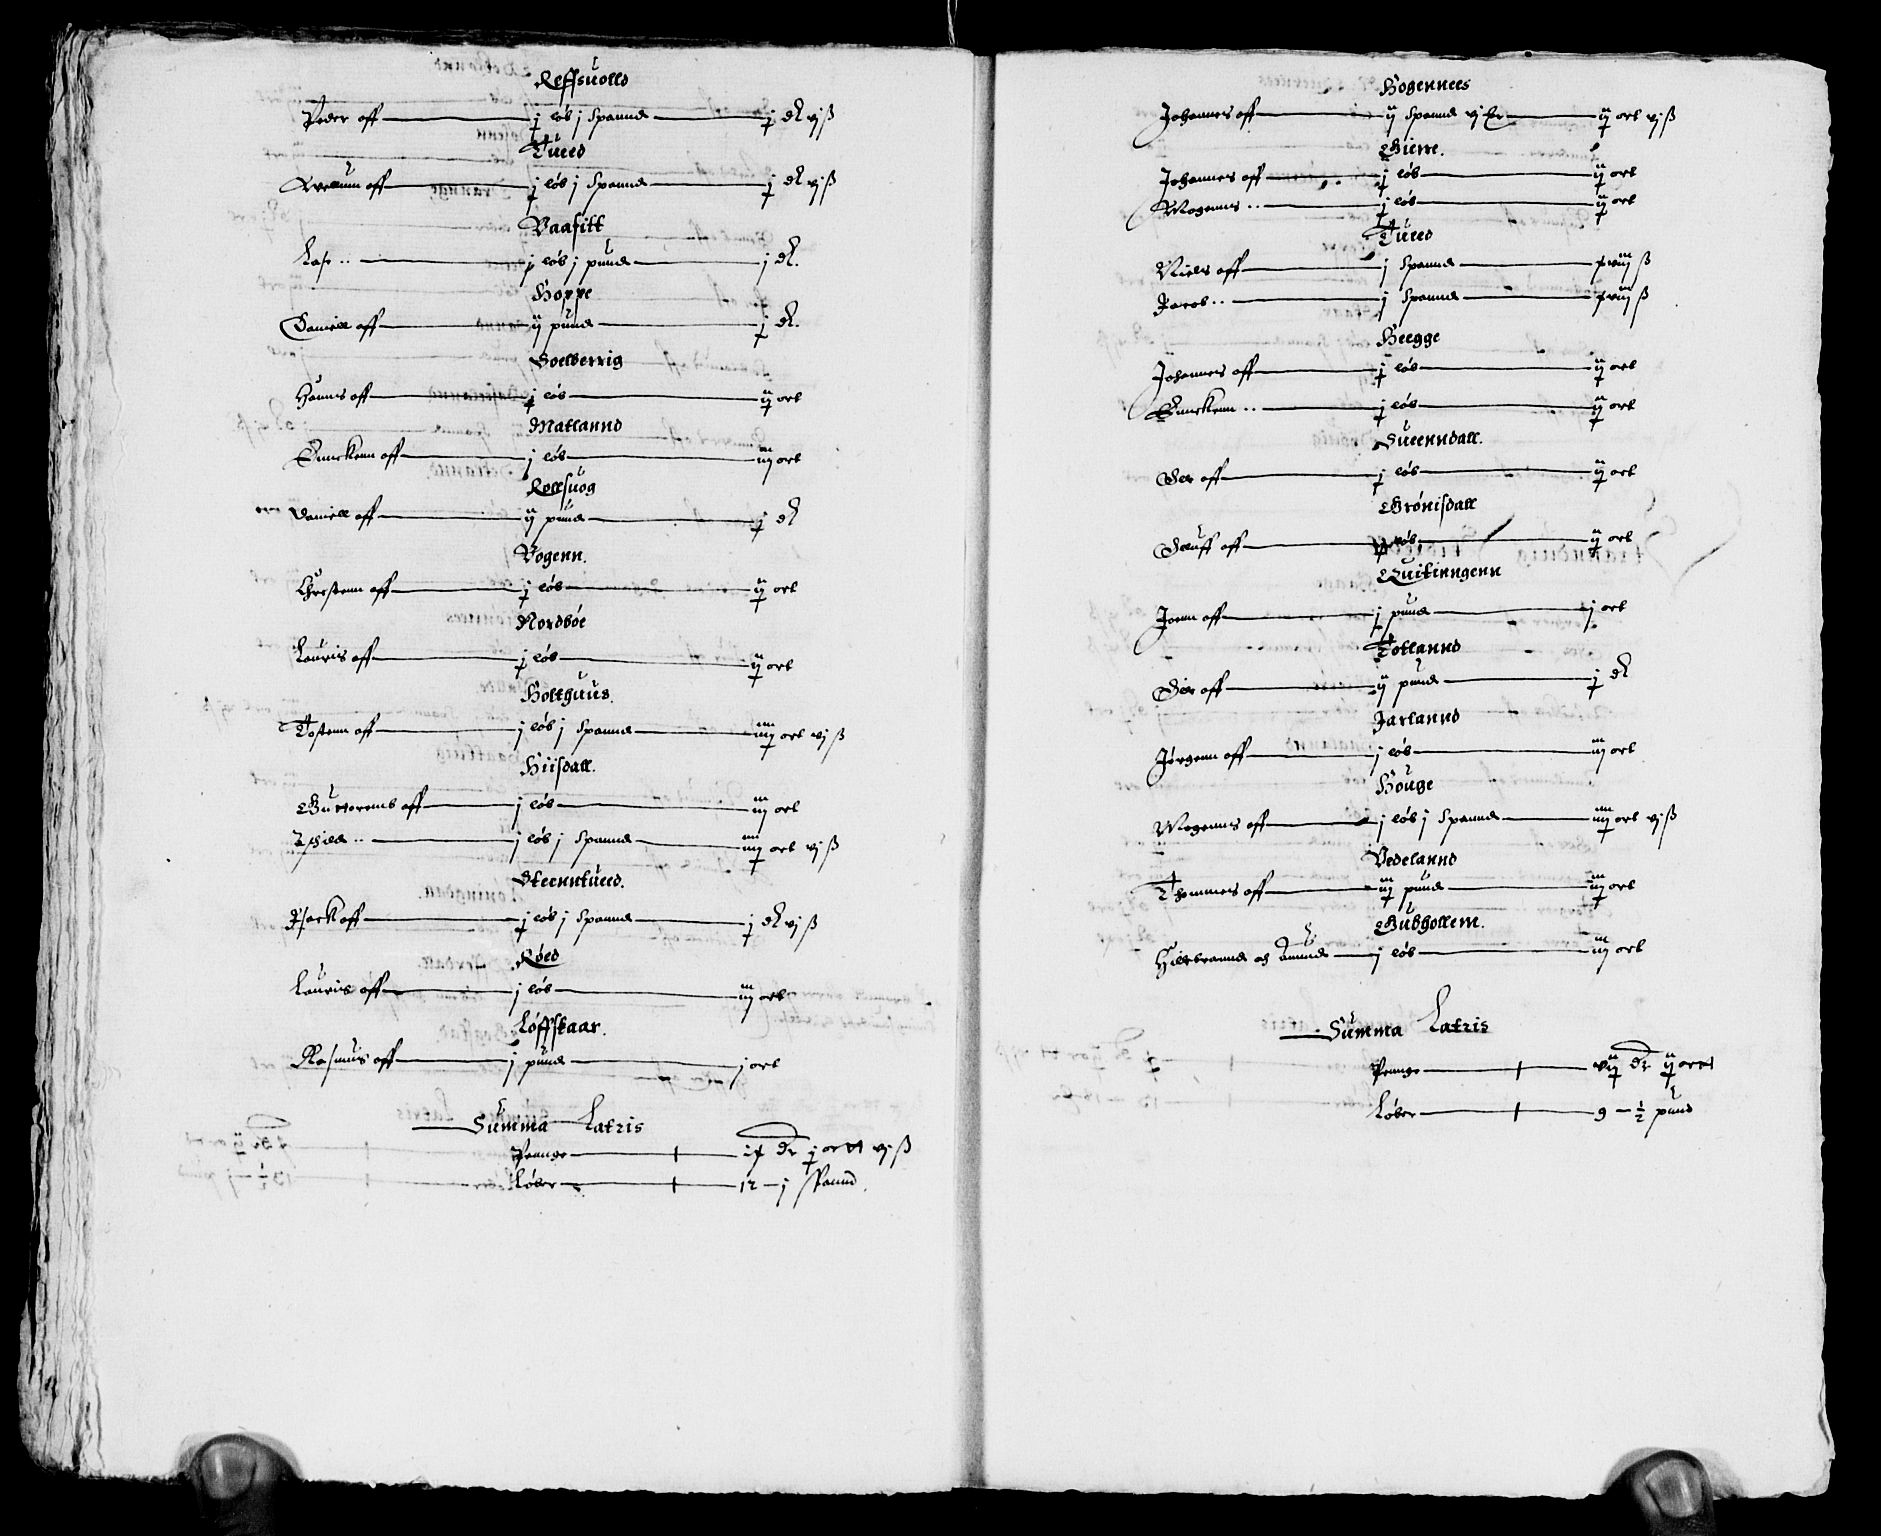 Reffsuolld
Peder off j løb j Spannd j dlr vj ß
Tueed
Krellum off j løb j Spannd j dlr vj ß
Vaafitt
Lass .. j løb j pund j dlr.
Hoppe
Daniell off ij pund j dlr.
Soelberrig
Hanns off j løb ij ort
Matlannd
Enuckenn off j løb iij ort
Rollsuog
Daniell off ij pund j dlr
Vogenn.
Christenn off j løb ij ort
Nordbøe
Lauris off j løb ij ort
Holthuus.
Tostenn off j løb j Spannd iiij ort vj ß
Hiisdall.
Guttoremb off j løb iij ort
Eskild .. j løb j Spannd iiij ort vj ß
Steenntueed.
off j løb j Spannd j dlr vj ß
Røed
Lauris off j løb iij ort
Løffskaar.
Rasmus off j pund j ort
Summa Latris
Pennge dlr j ortt vj ß
Løber 12 — j Spannd.
Hogennees
Johannes off ij Spannd vj ij ort vj ß
Gierre.
Johannes off j løb ij ort
Mogenns .. j løb ij ort
Tueed
Niels off j Spannd xviij ß
Jacob .. j Spannd xviij ß
Heegge
Johannes off j løb ij ort
Enuckenn .. j løb ij ort
Sueenndall.
off j løb ij ort
Grønisdall
Elluff off løb ij ort
Quitinngenn
Joenn off j pund j ort
Totlannd
off ij pund j dlr
Jarlannd
Jørgenn off j løb iij ort
Houge
Mogenns off j løb j Spannd iiij ort vj ß
Vedelannd
Thommes off iij pund iij ort
Gubhollem.
Hildebrannd och Amund j løb iij ort
Summa Latris
Pennge vij dlr ij ortt
Løber 9 — ½ pund